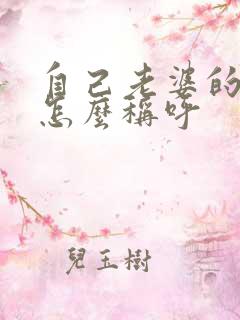 自己老婆的
怎麼稱呼
兒玉樹